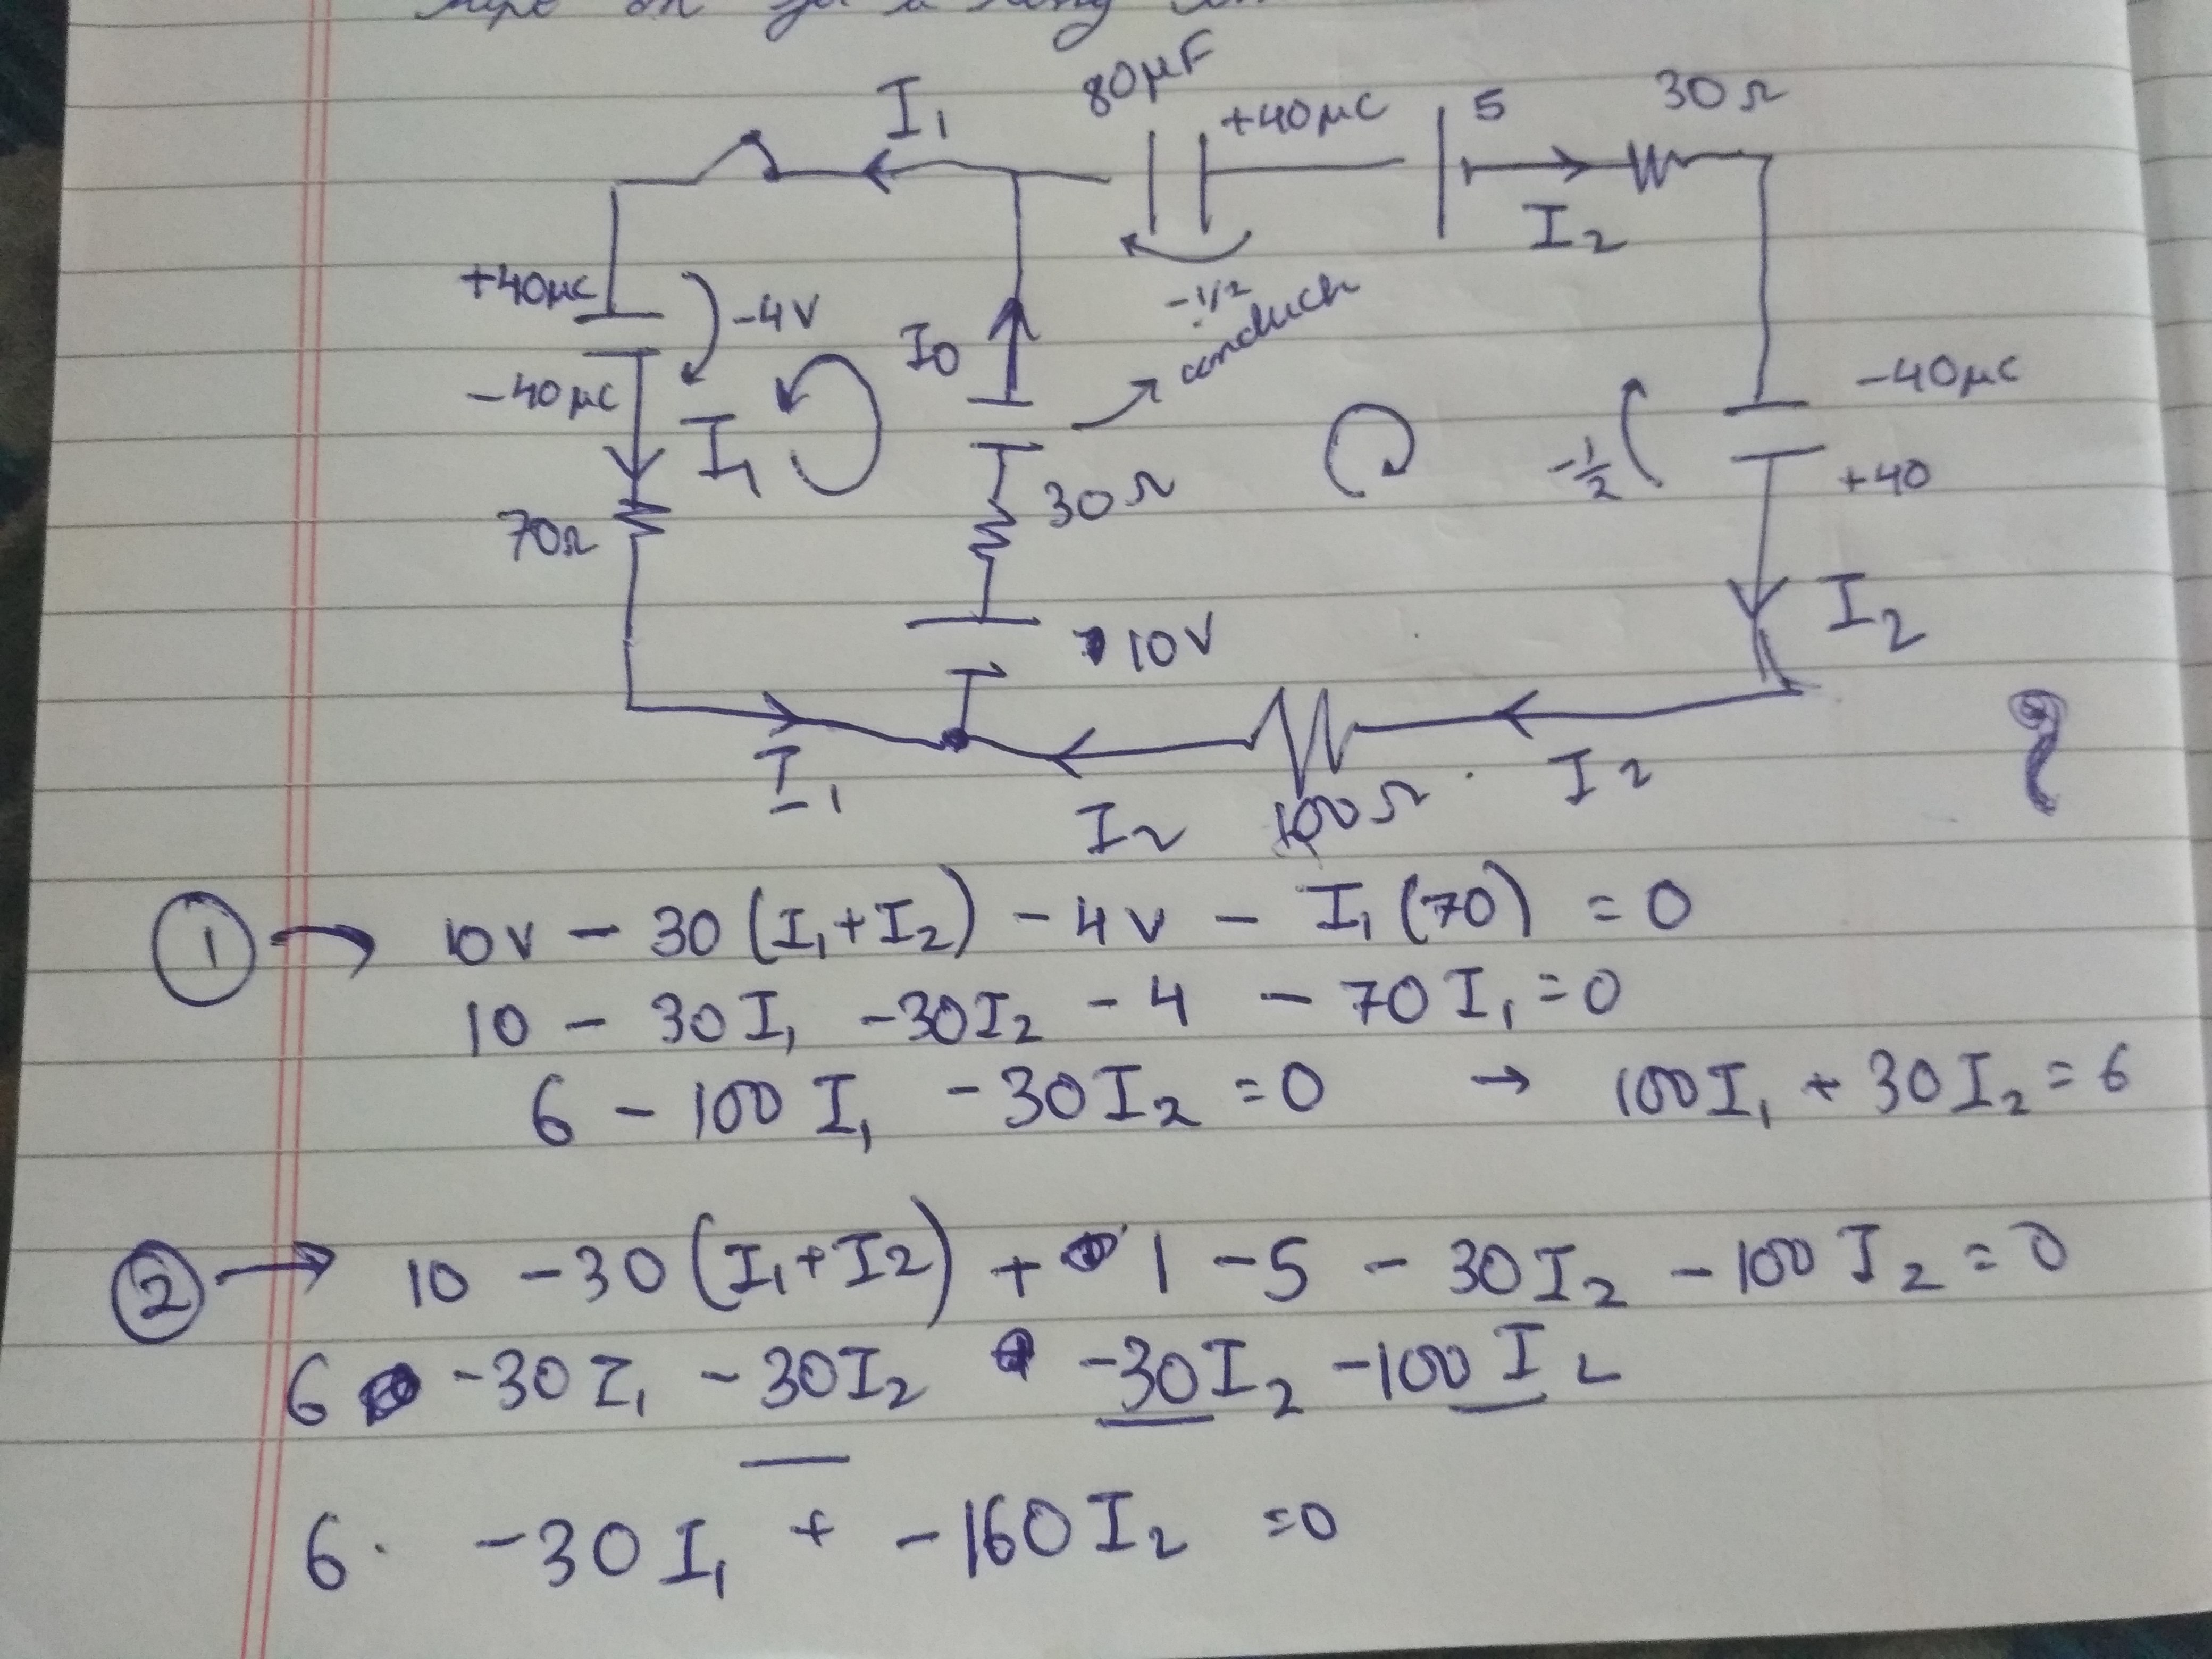 on
80μF
I₁
+40μC
5
30Ω
I₂
+40μC
-4V
I0
-1/2
conduct
-40μC
-40μC
I₁
-1/2
+40
30Ω
70Ω
I₂
10V
I₁
I₂
100Ω
I₂
① → 10V - 30(I₁+I₂) - 4V - I₁(70) = 0
10 - 30I₁ -30I₂ - 4 - 70I₁ = 0
6 - 100I₁ -30I₂ = 0 → 100I₁ + 30I₂ = 6
② → 10 -30(I₁+I2) + 1 -5 - 30I₂ -100I₂ = 0
6 -30I₁ - 30I₂ -30I₂ -100I₂
6. -30I₁ + -160I₂ = 0